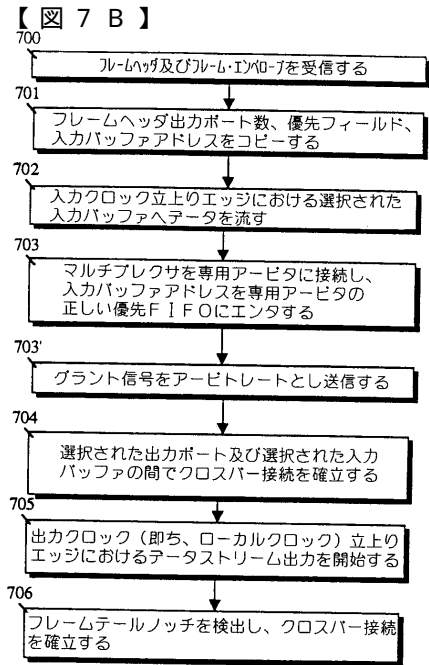 【図７Ｂ】
700
フレームヘッダ及びフレーム・エンベロープを受信する
701
フレームヘッダ出力ポート数、優先フィールド、
入力バッファアドレスをコピーする
702
入力クロック立上りエッジにおける選択された
入力バッファへデータを流す
703
マルチプレクサを専用アービタに接続し、
入力バッファアドレスを専用アービタの
正しい優先ＦＩＦＯにエンタする
703'
グラント信号をアービトレートとし送信する
704
選択された出力ポート及び選択された入力
バッファの間でクロスバー接続を確立する
705
出力クロック（即ち、ローカルクロック）立上り
エッジにおけるデータストリーム出力を開始する
706
フレームテールノッチを検出し、クロスバー接続
を確立する